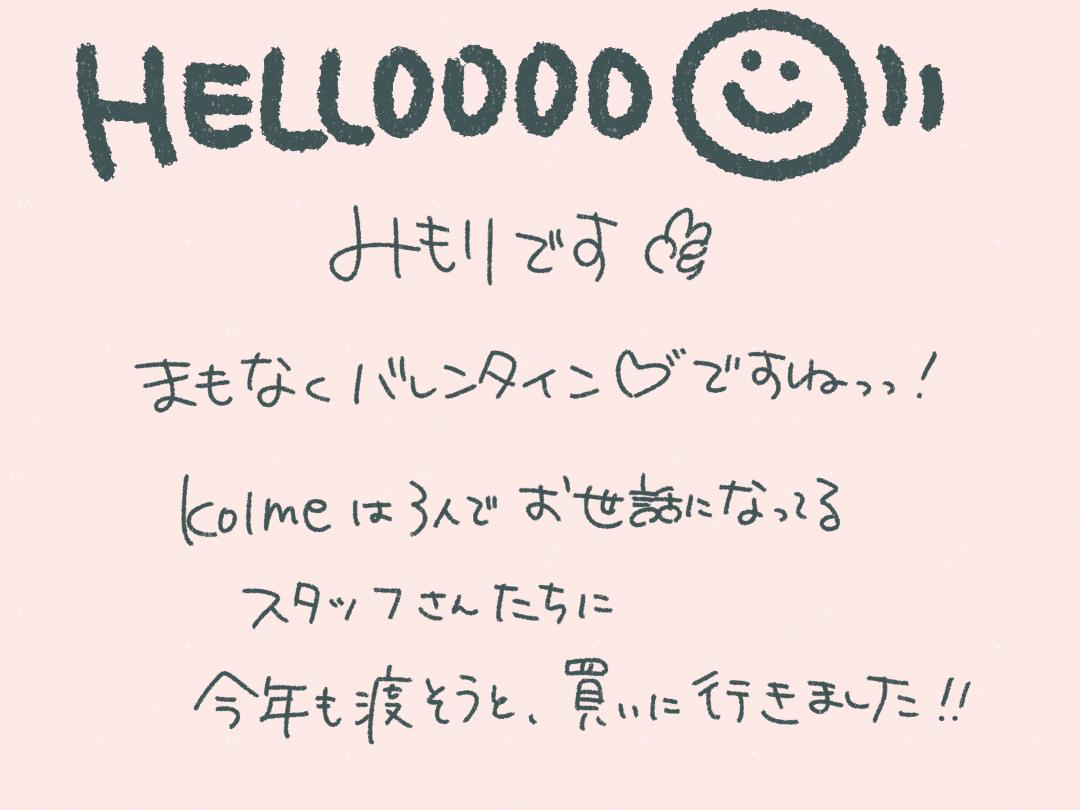 HELLOOOO
みもりです
まもなくバレンタイン♡ですねっっ!
kolmeは3人でお世話になってる
スタッフさんたちに
今年も渡そうと、買いに行きました!!